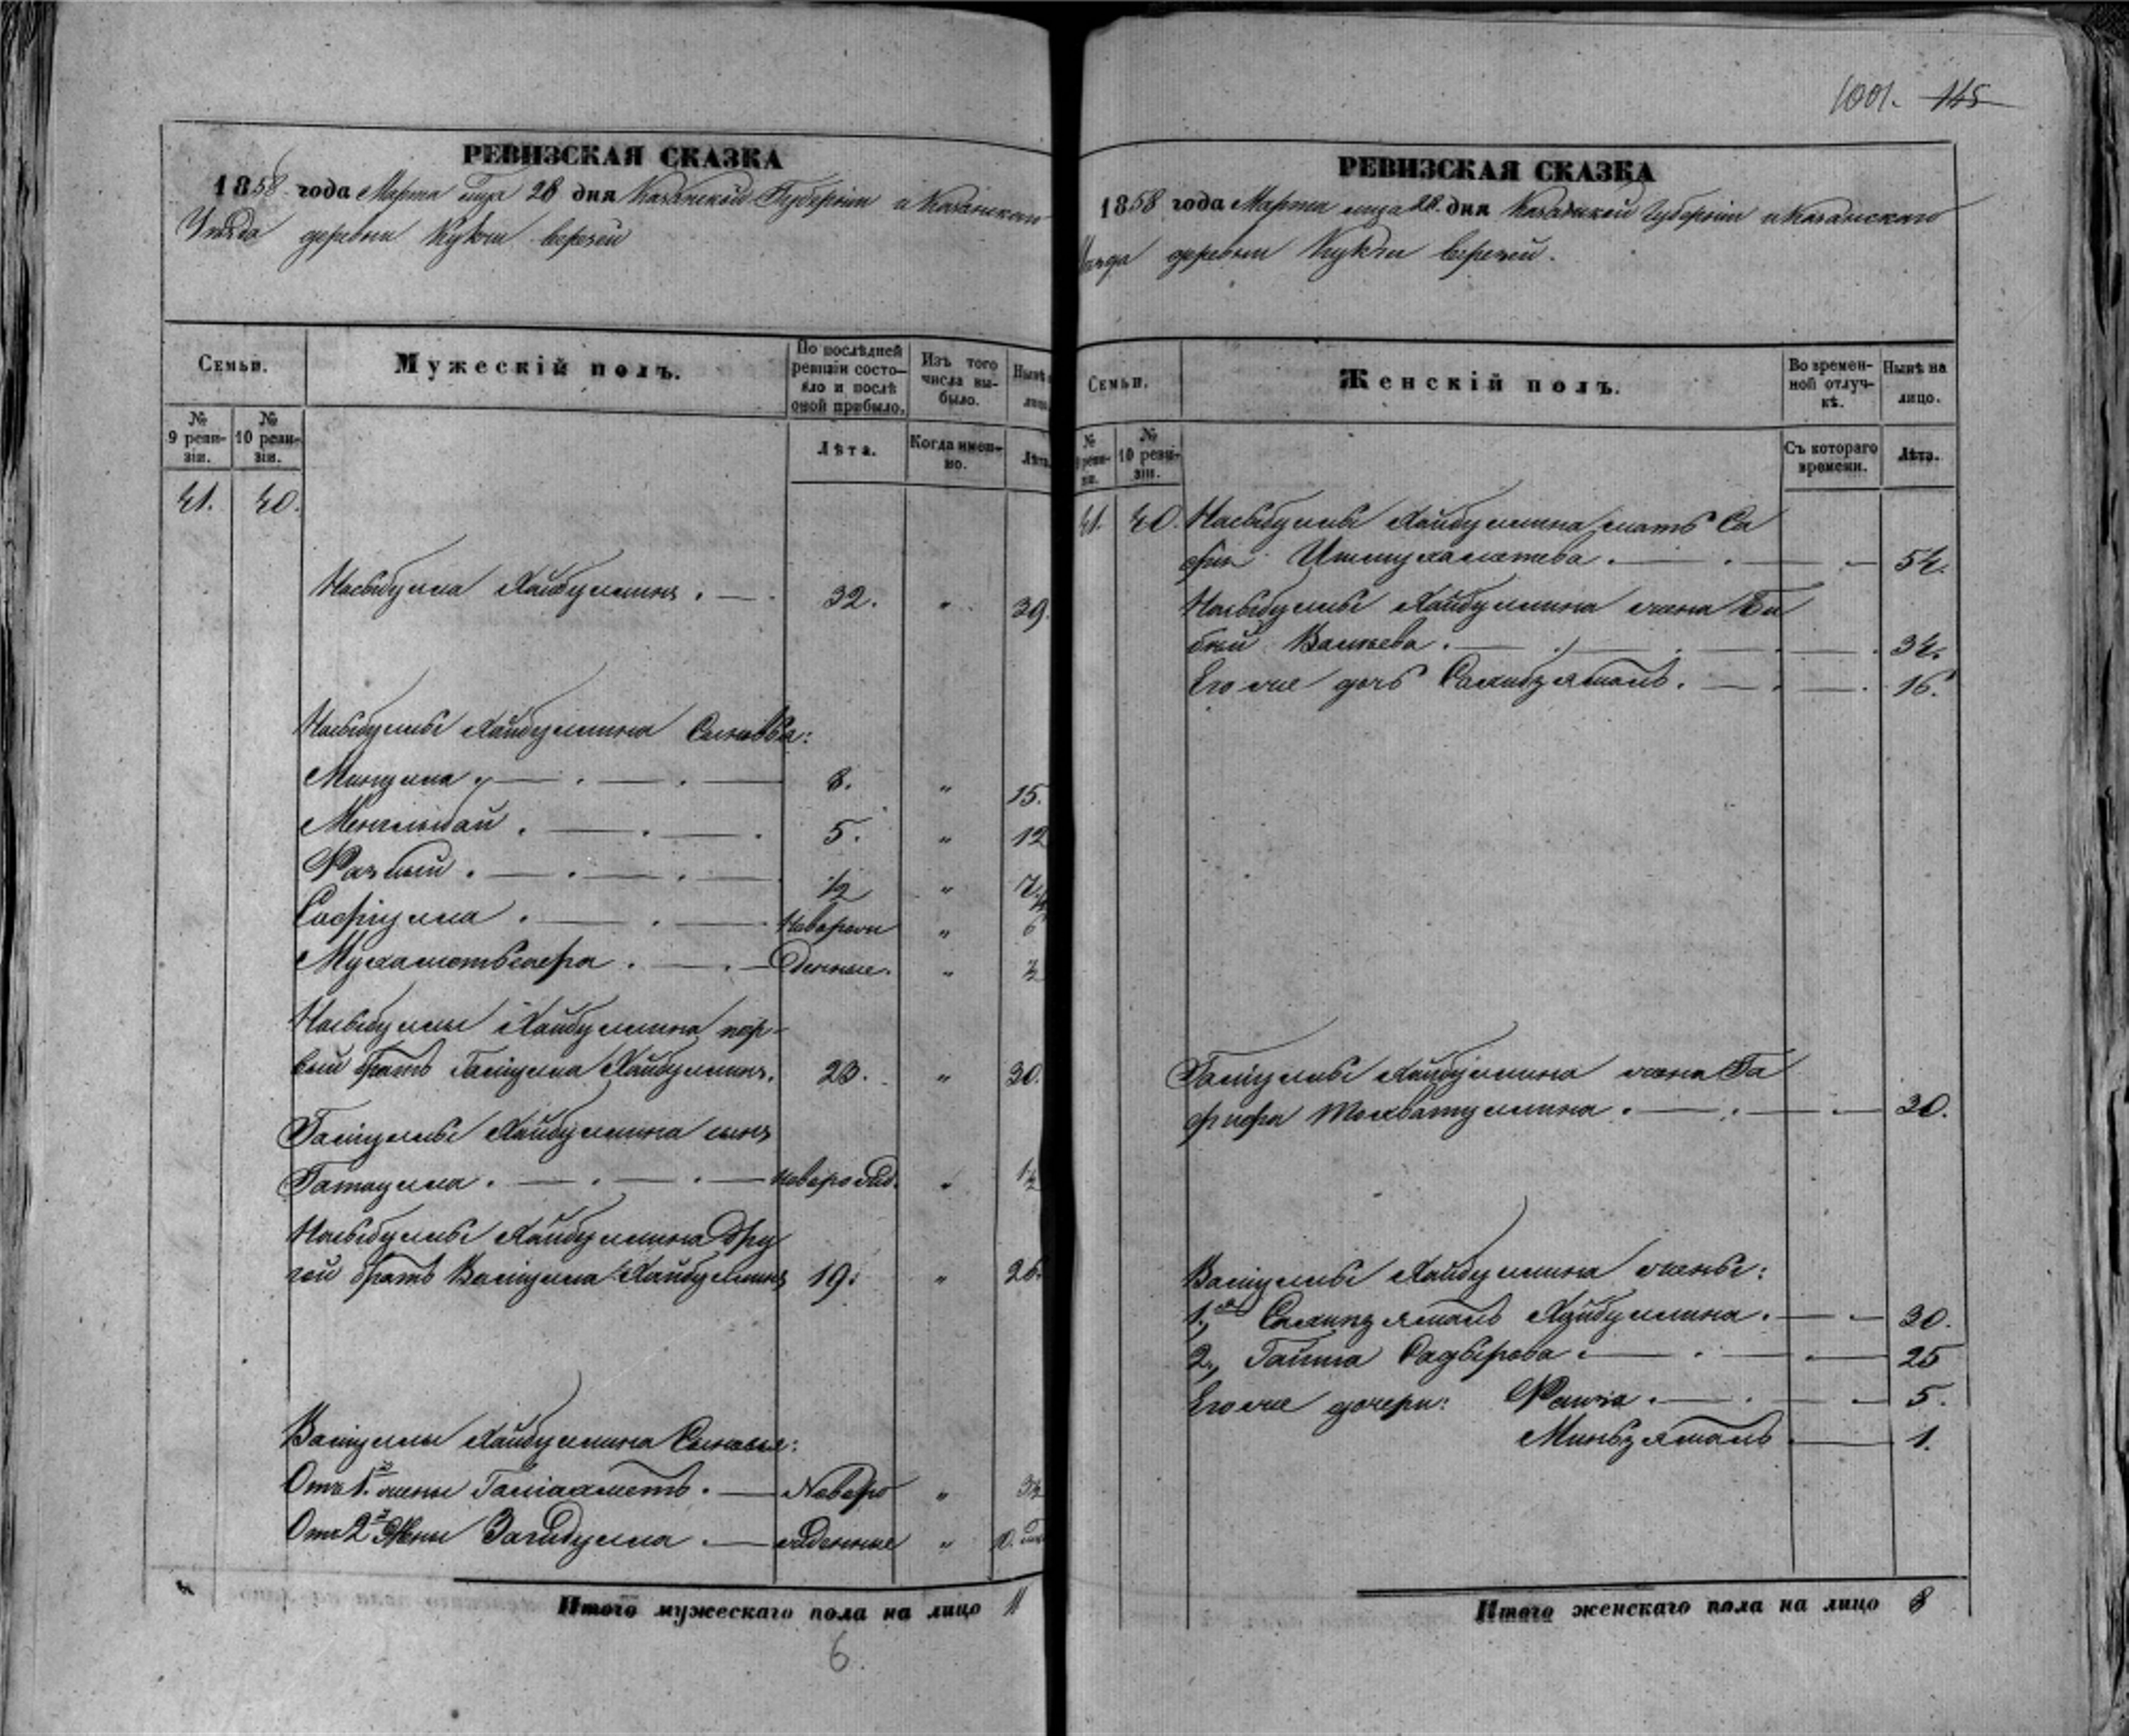 РЕВИЗСКАЯ СКАЗКА
1858 года Марта м-ца 28 дня Казанской Губернiи и Казанскаго
Уѣзда деревни Кукчи верхней
Семьи.
Мужескiй полъ.
По послѣдней ревизiи состояло и послѣ оной прибыло.
Изъ того числа выбыло.
Нынѣ на лицо.
№ 9 ревизiи.
№ 10 ревизiи.
Лѣта.
Когда именно.
Лѣта.
41. 40.
Насыбулла Хайбуллинъ. 32. " 39.
Насыбуллы Хайбуллина Сыновья:
Минулла 8. " 15.
Менглыбай. 5. " 12
1/2 "
Сафiулла. Новорож " 6
Мухаметьсафа. денные. " 3
Насыбуллы Хайбуллина пер-
вый братъ Галiулла Хайбуллинъ. 23. " 30.
Галiуллы Хайбуллина сынъ
Гатаулла. новорожд. "
Насыбуллы Хайбуллина дру
гой братъ Валiулла Хайбуллинъ 19. " 26.
Валiуллы Хайбуллина Сыновья:
Отъ 1й жены Галiахметъ. Новоро "
Отъ 2й Жены Загидулла. жденные "
Итого мужескаго пола на лицо 11
6.
1001. 145
РЕВИЗСКАЯ СКАЗКА
1858 года Марта м-ца 28. дня Казанской Губернiи и Казанскаго
Уѣзда деревни Кукчи верхней.
Семьи.
Женскiй полъ.
Во временной отлучкѣ.
Нынѣ на лицо.
№ 9 ревизiи.
№ 10 ревизiи.
Съ котораго времени.
Лѣта.
41. 40. Насыбуллы Хайбуллина мать Са
фiя Ишмухаметева. 54.
Насыбуллы Хайбуллина жена Би
бий Валиева. 34.
Его же дочь Сахибзямаль. 16.
Галiуллы Хайбуллина жена Га
фифа 30.
Валiуллы Хайбуллина жены:
1я, Сахипзямаль Хайбуллина. 30.
2, Гайша Садырова 25
Его же дочери: 5.
Миньзямаль 1.
Итого женскаго пола на лицо 8